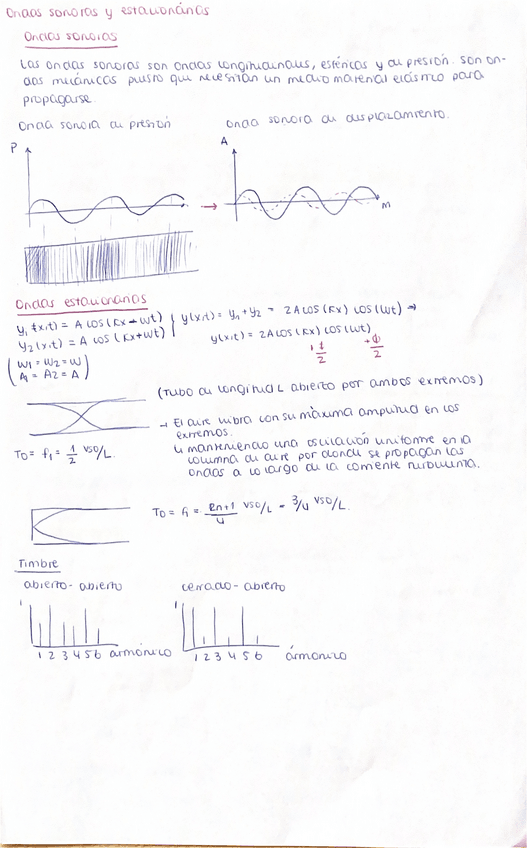 Ondas sonoras y estacionarias
Ondas sonoras
Las ondas sonoras son ondas longitudinales, esféricas y de presión. Son on-
das mecánicas puesto que necesitan un medio material elástico para
propagarse.
Onda sonora de presión
Onda sonora de desplazamiento.
P
A
m
Ondas estacionarias
y₁(x,t) = A cos (kx - wt)
y₂(x,t) = A cos (kx + wt)
y(x,t) = y₁ + y₂ = 2A cos (kx) cos (wt) →
y(x,t) = 2A cos (kx) cos (wt)
(w₁ = w₂ = w
A₁ = A₂ = A)
+ ϕ/2
(Tubo de longitud L abierto por ambos extremos)
→ El aire vibra con su máxima amplitud en los
extremos.
↳ manteniendo una oscilación uniforme en la
columna de aire por donde se propagan las
ondas a lo largo de la corriente turbulenta.
T0 = f₁ = 1/2 vso/L.
T0 = f₁ = 2n+1/4 vso/L = 3/4 vso/L.
Timbre
abierto - abierto
cerrado - abierto
1 2 3 4 5 6 armónico
1 2 3 4 5 6 armónico